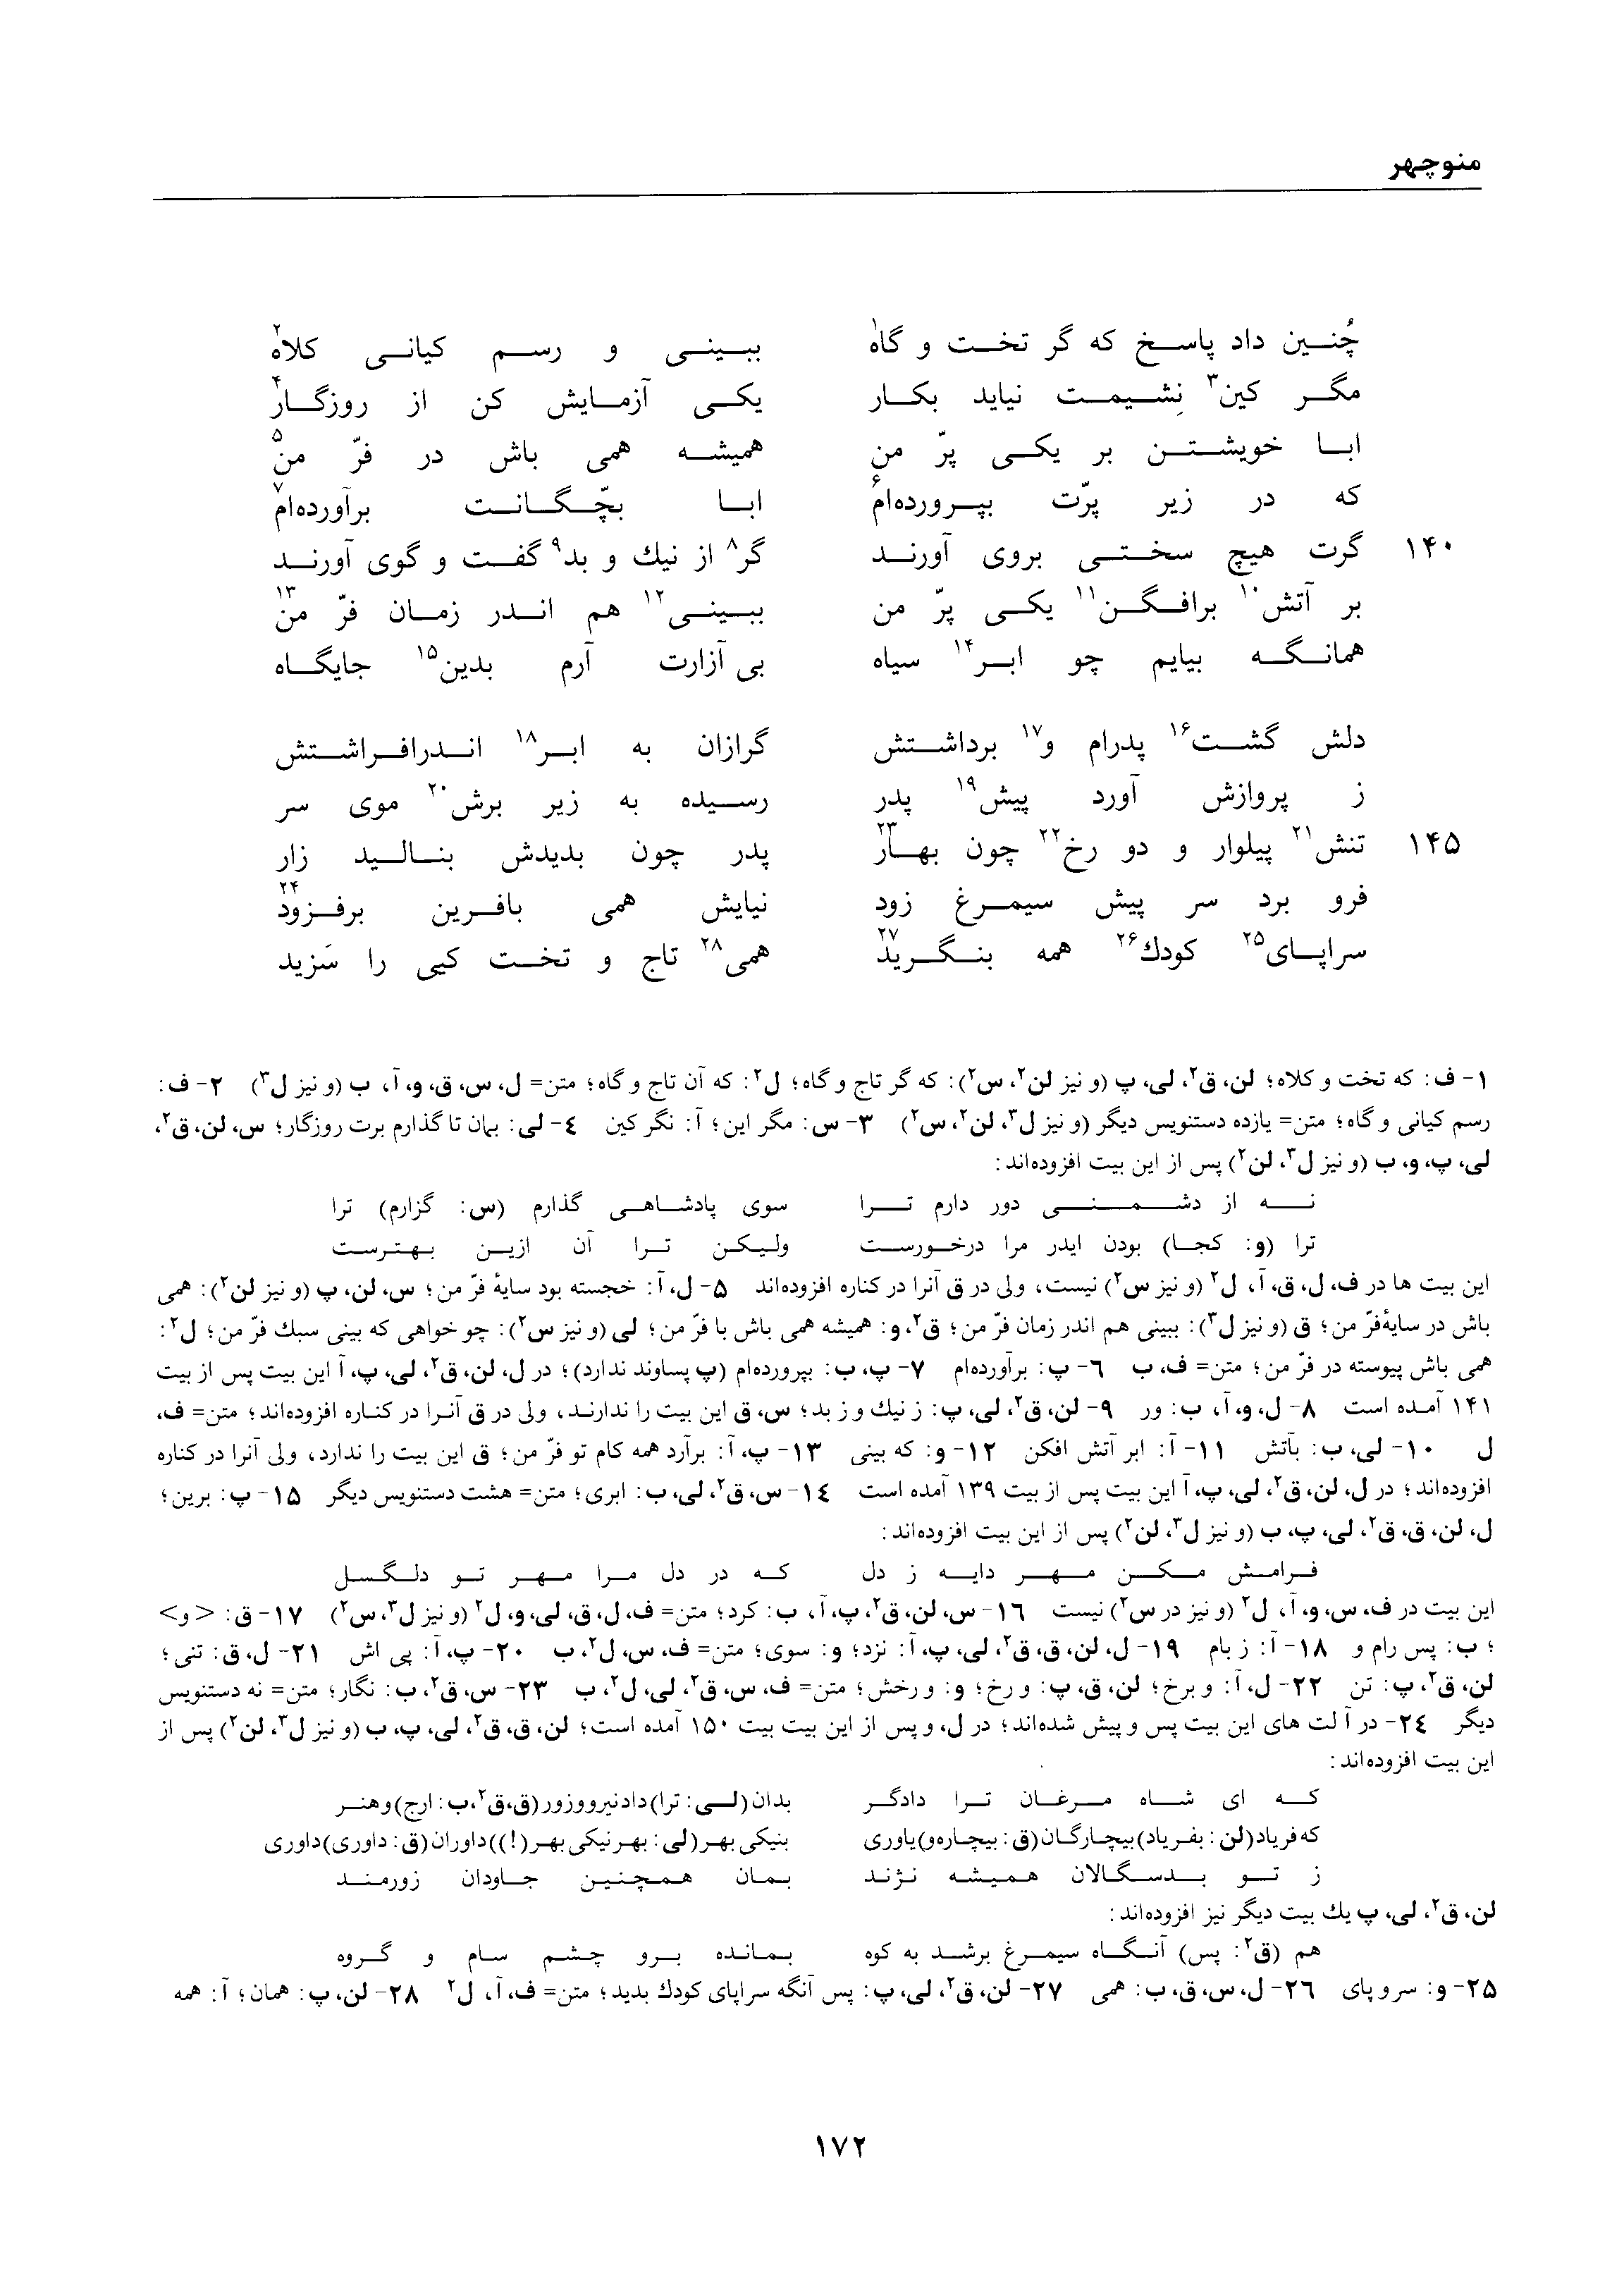 منوچهر
چُنین داد پاسخ که گر تخت و گاه۱ ببینی و رسم کیانی کلاه۲
مگر کین۳ نشیمت نیاید بکار یکی آزمایش کن از روزگار۴
ابا خویشتن بر یکی پرّ من همیشه همی باش در فرّ من۵
که در زیر پرّت بپرورده‌ام۶ ابا بچّگانت برآورده‌ام۷
۱۴۰ گرت هیچ سختی بروی آورند گر۸ از نیك و بد۹ گفت و گوی آورند
بر آتش۱۰ برافگن۱۱ یکی پرّ من ببینی۱۲ هم اندر زمان فرّ من۱۳
همانگه بیایم چو ابر۱۴ سیاه بی آزارت آرم بدین۱۵ جایگاه
دلش گشت۱۶ پدرام و۱۷ برداشتش گرازان به ابر۱۸ اندرافراشتش
ز پروازش آورد پیش۱۹ پدر رسیده به زیر برش۲۰ موی سر
۱۴۵ تنش۲۱ پیلوار و دو رخ۲۲ چون بهار۲۳ پدر چون بدیدش بنالید زار
فرو برد سر پیش سیمرغ زود نیایش همی بافرین برفزود۲۴
سراپای۲۵ کودك۲۶ همه بنگرید۲۷ همی۲۸ تاج و تخت کیی را سَزید
۱- ف: که تخت و کلاه؛ لن، ق۲، لی، پ (و نیز لن۲، س۲): که گر تاج و گاه؛ ل۲: که آن تاج و گاه؛ متن= ل، س، ق، و، آ، ب (و نیز ل۳) ۲- ف:
رسم کیانی و گاه؛ متن= یازده دستنویس دیگر (و نیز ل۳، لن۲، س۲) ۳- س: مگر این؛ آ: نگر کین ۴- لی: بمان تا گذارم برت روزگار؛ س، لن، ق۲،
لی، پ، و، ب (و نیز ل۳، لن۲) پس از این بیت افزوده‌اند:
نه از دشمنی دور دارم ترا سوی پادشاهی گذارم (س: گزارم) ترا
ترا (و: کجا) بودن ایدر مرا درخورست ولیکن ترا آن ازین بهترست
این بیت ها در ف، ل، ق، آ، ل۲ (و نیز س۲) نیست، ولی در ق آنرا در کناره افزوده‌اند ۵- ل، آ: خجسته بود سایۀ فرّ من؛ س، لن، پ (و نیز لن۲): همی
باش در سایۀ فرّ من؛ ق (و نیز ل۳): ببینی هم اندر زمان فرّ من؛ ق۲، و: همیشه همی باش با فرّ من؛ لی (و نیز س۲): چو خواهی که بینی سبك فرّ من؛ ل۲:
همی باش پیوسته در فرّ من؛ متن= ف، ب ۶- پ: برآورده‌ام ۷- پ، ب: بپرورده‌ام (پ پساوند ندارد)؛ در ل، لن، ق۲، لی، پ، آ این بیت پس از بیت
۱۴۱ آمده است ۸- ل، و، آ، ب: ور ۹- لن، ق۲، لی، پ: ز نیك و ز بد؛ س، ق این بیت را ندارند، ولی در ق آنرا در کناره افزوده‌اند؛ متن= ف،
ل ۱۰- لی، ب: بآتش ۱۱- آ: ابر آتش افکن ۱۲- و: که بینی ۱۳- پ، آ: برآرد همه کام تو فرّ من؛ ق این بیت را ندارد، ولی آنرا در کناره
افزوده‌اند؛ در ل، لن، ق۲، لی، پ، آ این بیت پس از بیت ۱۳۹ آمده است ۱۴- س، ق۲، لی، ب: ابری؛ متن= هشت دستنویس دیگر ۱۵- پ: برین؛
ل، لن، ق، ق۲، لی، پ، ب (و نیز ل۳، لن۲) پس از این بیت افزوده‌اند:
فرامش مکن مهر دایه ز دل که در دل مرا مهر تو دلگسل
این بیت در ف، س، و، آ، ل۲ (و نیز در س۲) نیست ۱۶- س، لن، ق۲، پ، آ، ب: کرد؛ متن= ف، ل، ق، لی، و، ل۲ (و نیز ل۳، س۲) ۱۷- ق: <و>
؛ ب: پس رام و ۱۸- آ: ز بام ۱۹- ل، لن، ق، ق۲، لی، پ، آ: نزد؛ و: سوی؛ متن= ف، س، ل۲، ب ۲۰- پ، آ: پی اش ۲۱- ل، ق: تنی؛
لن، ق۲، پ: تن ۲۲- ل، آ: و برخ؛ لن، ق، پ: و رخ؛ و: و رخش؛ متن= ف، س، ق۲، لی، ل۲، ب ۲۳- س، ق۲، ب: نگار؛ متن= نه دستنویس
دیگر ۲۴- در آ لت های این بیت پس و پیش شده‌اند؛ در ل، و پس از این بیت بیت ۱۵۰ آمده است؛ لن، ق، ق۲، لی، پ، ب (و نیز ل۳، لن۲) پس از
این بیت افزوده‌اند:
که ای شاه مرغان ترا دادگر بدان (لی: ترا) داد نیرو و زور (ق، ق۲، ب: ارج) و هنر
که فریاد (لن: بفریاد) بیچارگان (ق: بیچاره‌و) یاوری بنیکی بهر (لی: بهر نیکی بهر (!)) داوران (ق: داوری) داوری
ز تو بدسگالان همیشه نژند بمان همچنین جاودان زورمند
لن، ق۲، لی، پ یك بیت دیگر نیز افزوده‌اند:
هم (ق۲: پس) آنگاه سیمرغ برشد به کوه بمانده برو چشم سام و گروه
۲۵- و: سر و پای ۲۶- ل، س، ق، ب: همی ۲۷- لن، ق۲، لی، پ: پس آنگه سراپای کودك بدید؛ متن= ف، آ، ل۲ ۲۸- لن، پ: همان؛ آ: همه
۱۷۲